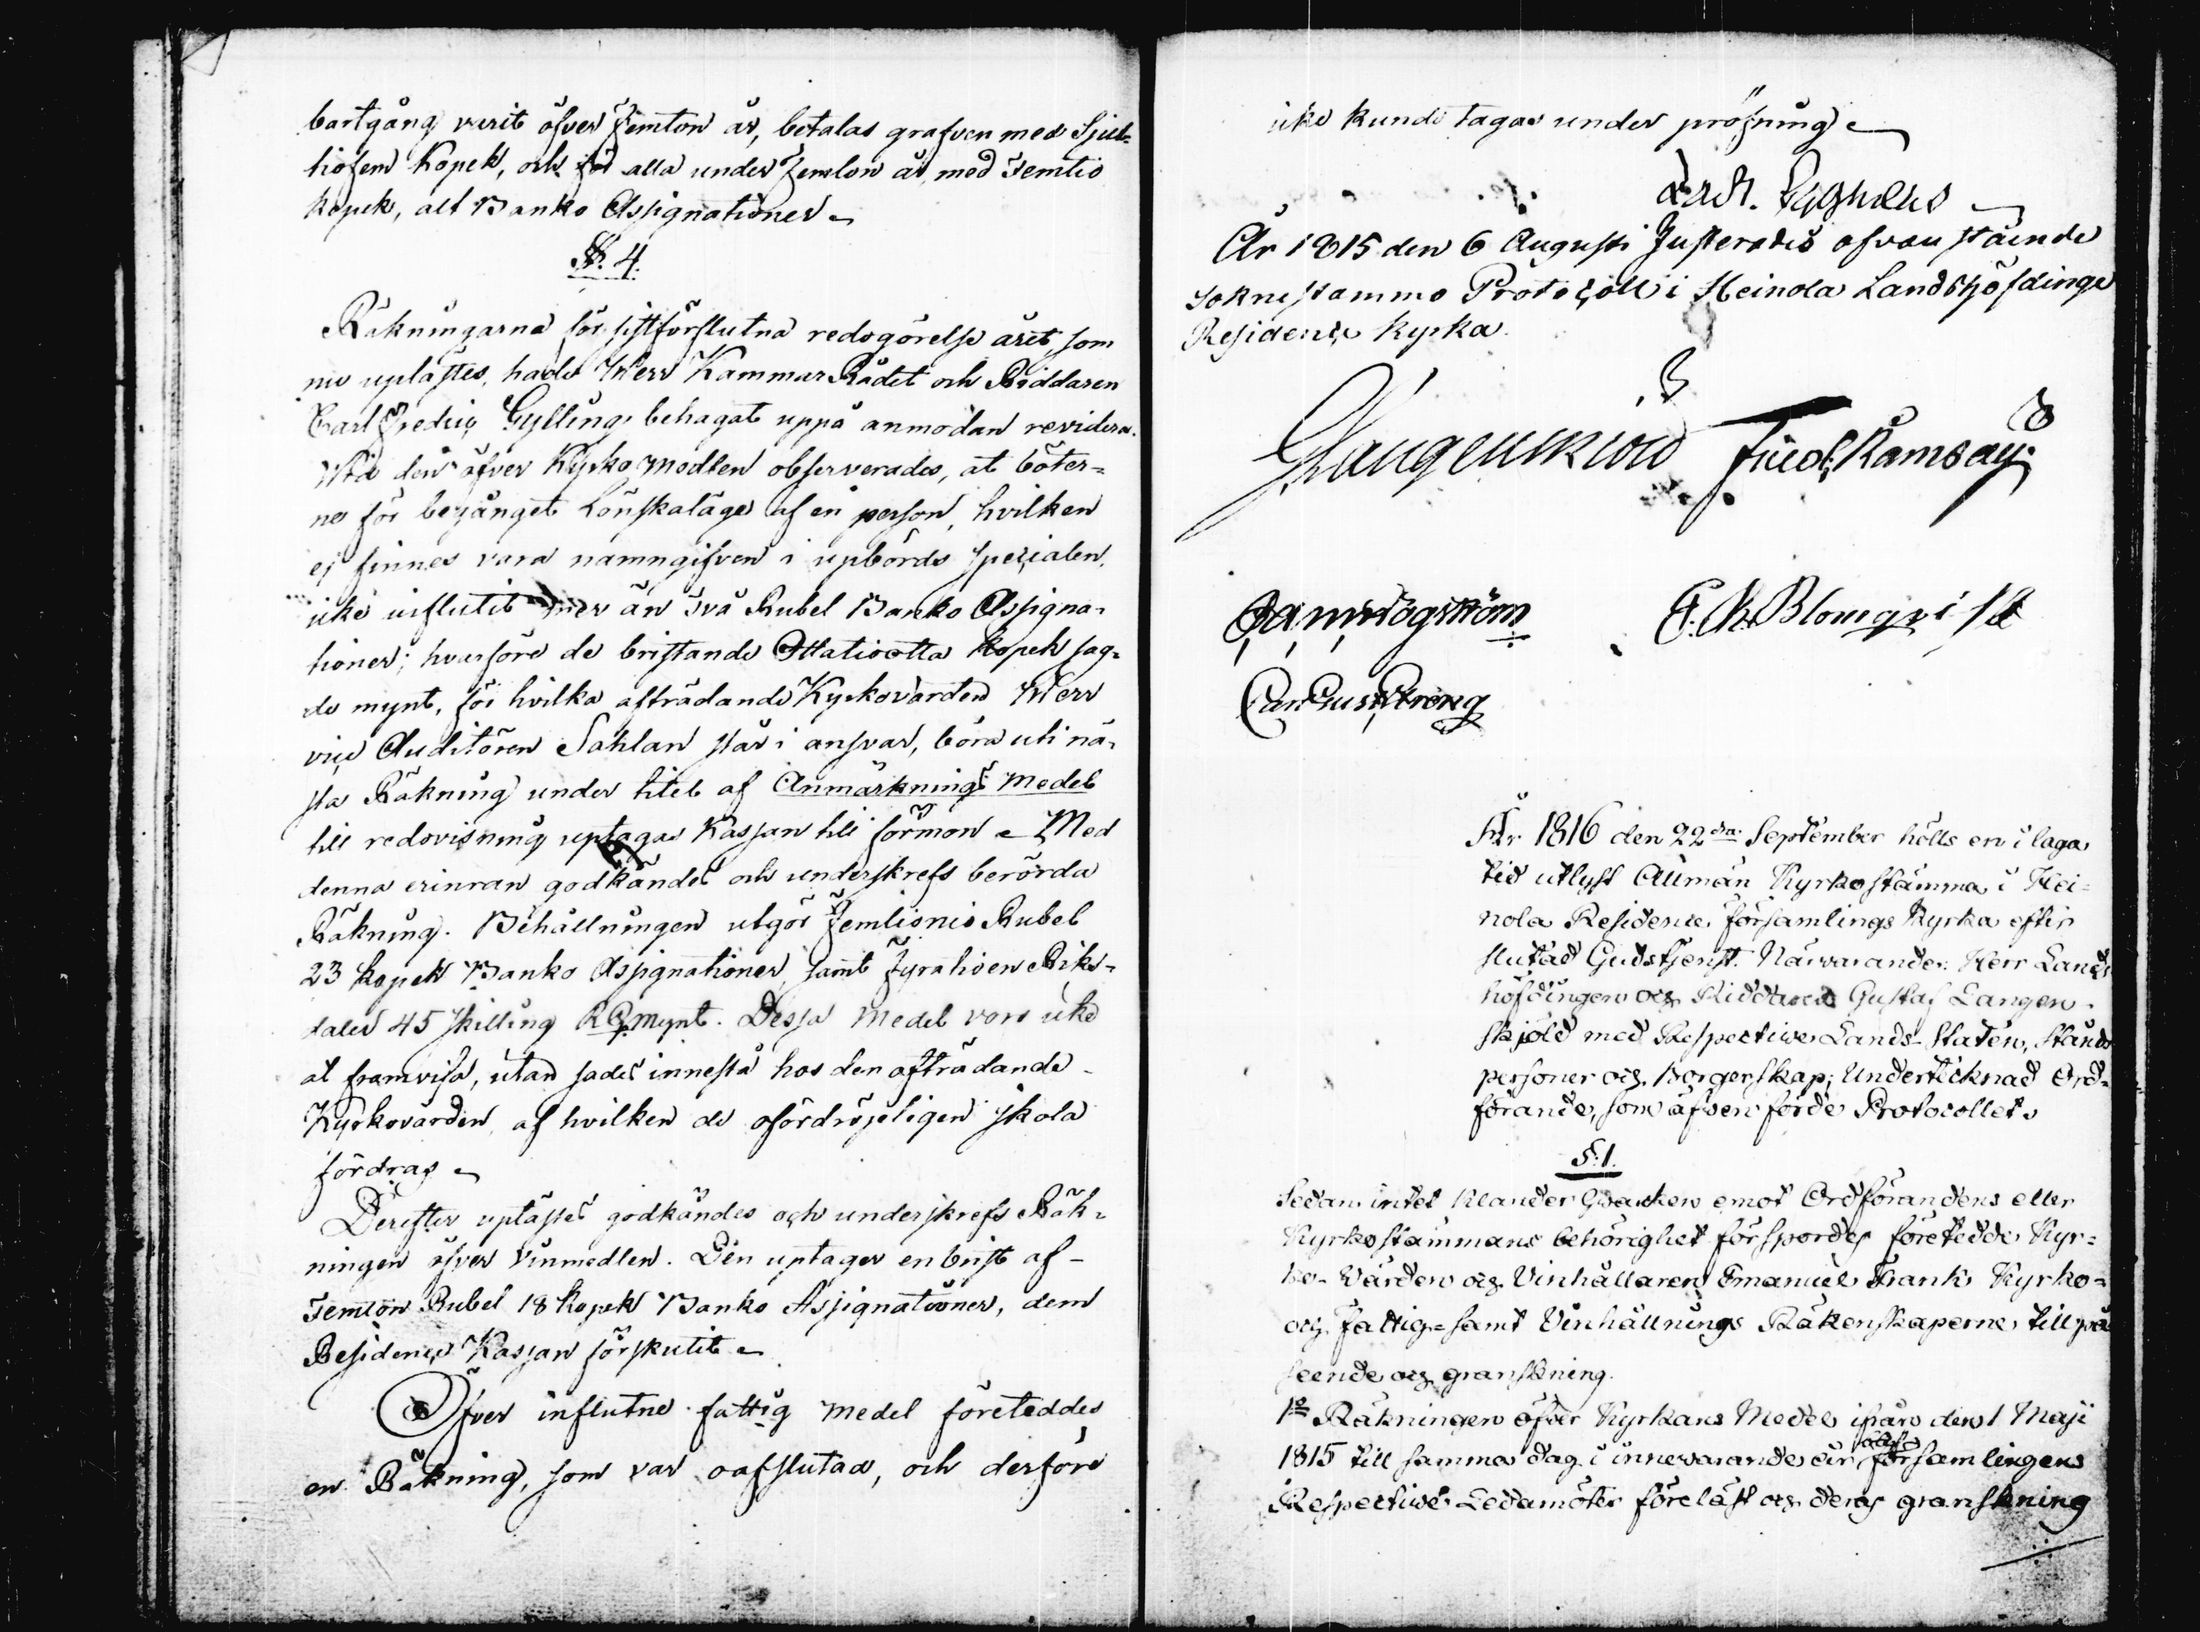 bortgång varit öfver Femton år, betalas grafven med Sjut-
tiofem Kopek, och för alla under Femton år med Femtio
kopek, alt Banko Assignationer.
§. 4.
Räkningarna för sistförflutna redogörelse året, som
nu uplästes, hade Herr Kammar Rådet och Riddaren
Carl Fredric Gylling behagat uppå anmodan revidera.
Wid den öfver Kyrko Medlen observerades, at böter-
ne för begånget Lönskaläge af en person, hvilken
ej finnes vara namngifven i upbörds specialen,
icke influtit mer än två Rubel Banko Assigna-
tioner; hvarföre de bristande Ottatiootta Kopek sag-
de mynt, för hvilka afträdande Kyrkovärden Herr
vice Auditören Sahlan står i ansvar, böra uti nä-
sta Räkning under titel af Anmärknings Medel
till redovisning uptagas Kassan till förmon. Med
denna erinran godkändes och underskrefs berörda
Räkning. Behållningen utgör Femtionio Rubel
23 kopek Banko Assignationer, samt Fyratioen Riks-
daler 45 skilling RGmynt. Dessa Medel voro icke
at framvisa, utan sades innestå hos den afträdande
Kyrkovärden, af hvilken de ofördröjeligen skola
fordras.
Derefter uplästes godkändes och underskrefs Räk-
ningen öfver Vinmedlen. Den uptager en brist af
Femton Rubel 18 Kopek Banko Assignationer, dem
Residence Kassan förskutit.
Öfver influtne fattig Medel företeddes
en Räkning, som var oafslutad, och derföre
icke kunde tagas under pröfning.
Er. Cygnæus
År 1815 den 6 Augusti Justerades ofvan stående
Soknestämmo Protocoll i Heinola Landshöfdinge
Residence Kyrka.
GLangenskiöld Fried. Ramsay
F. Ch. Blomqvist
Carl Gust Streng
År 1816 den 22dra September hölls en i laga
tid utlyst Allmän Kyrkostämma i Hei-
nola Residence församlings Kyrka efter
slutad Gudstjenst. Närvarande: Herr Lands
höfdingen och Riddaren Gustaf Langen-
skjöld med Respective Lands-Staten, Stånds
personer och Borgerskap; Undertecknad Ord-
förande, som äfven förde Protocollet.
§. 1.
Sedan intet Klander hvarken emot Ordförandens eller
Kyrkostämmans behörighet förspordes företedde Kyr-
ko-Värden och Vinhållaren Emanuel Frank Kyrko-
och Fattig- samt Vinhållnings Räkenskaperne till på
seende och granskning.
1o Räkningen öfver Kyrkans Medel ifrån den 1 Maji
1815 till samma dag i innevarande år församlingens
Respective Ledamöter föreläst och deras granskning